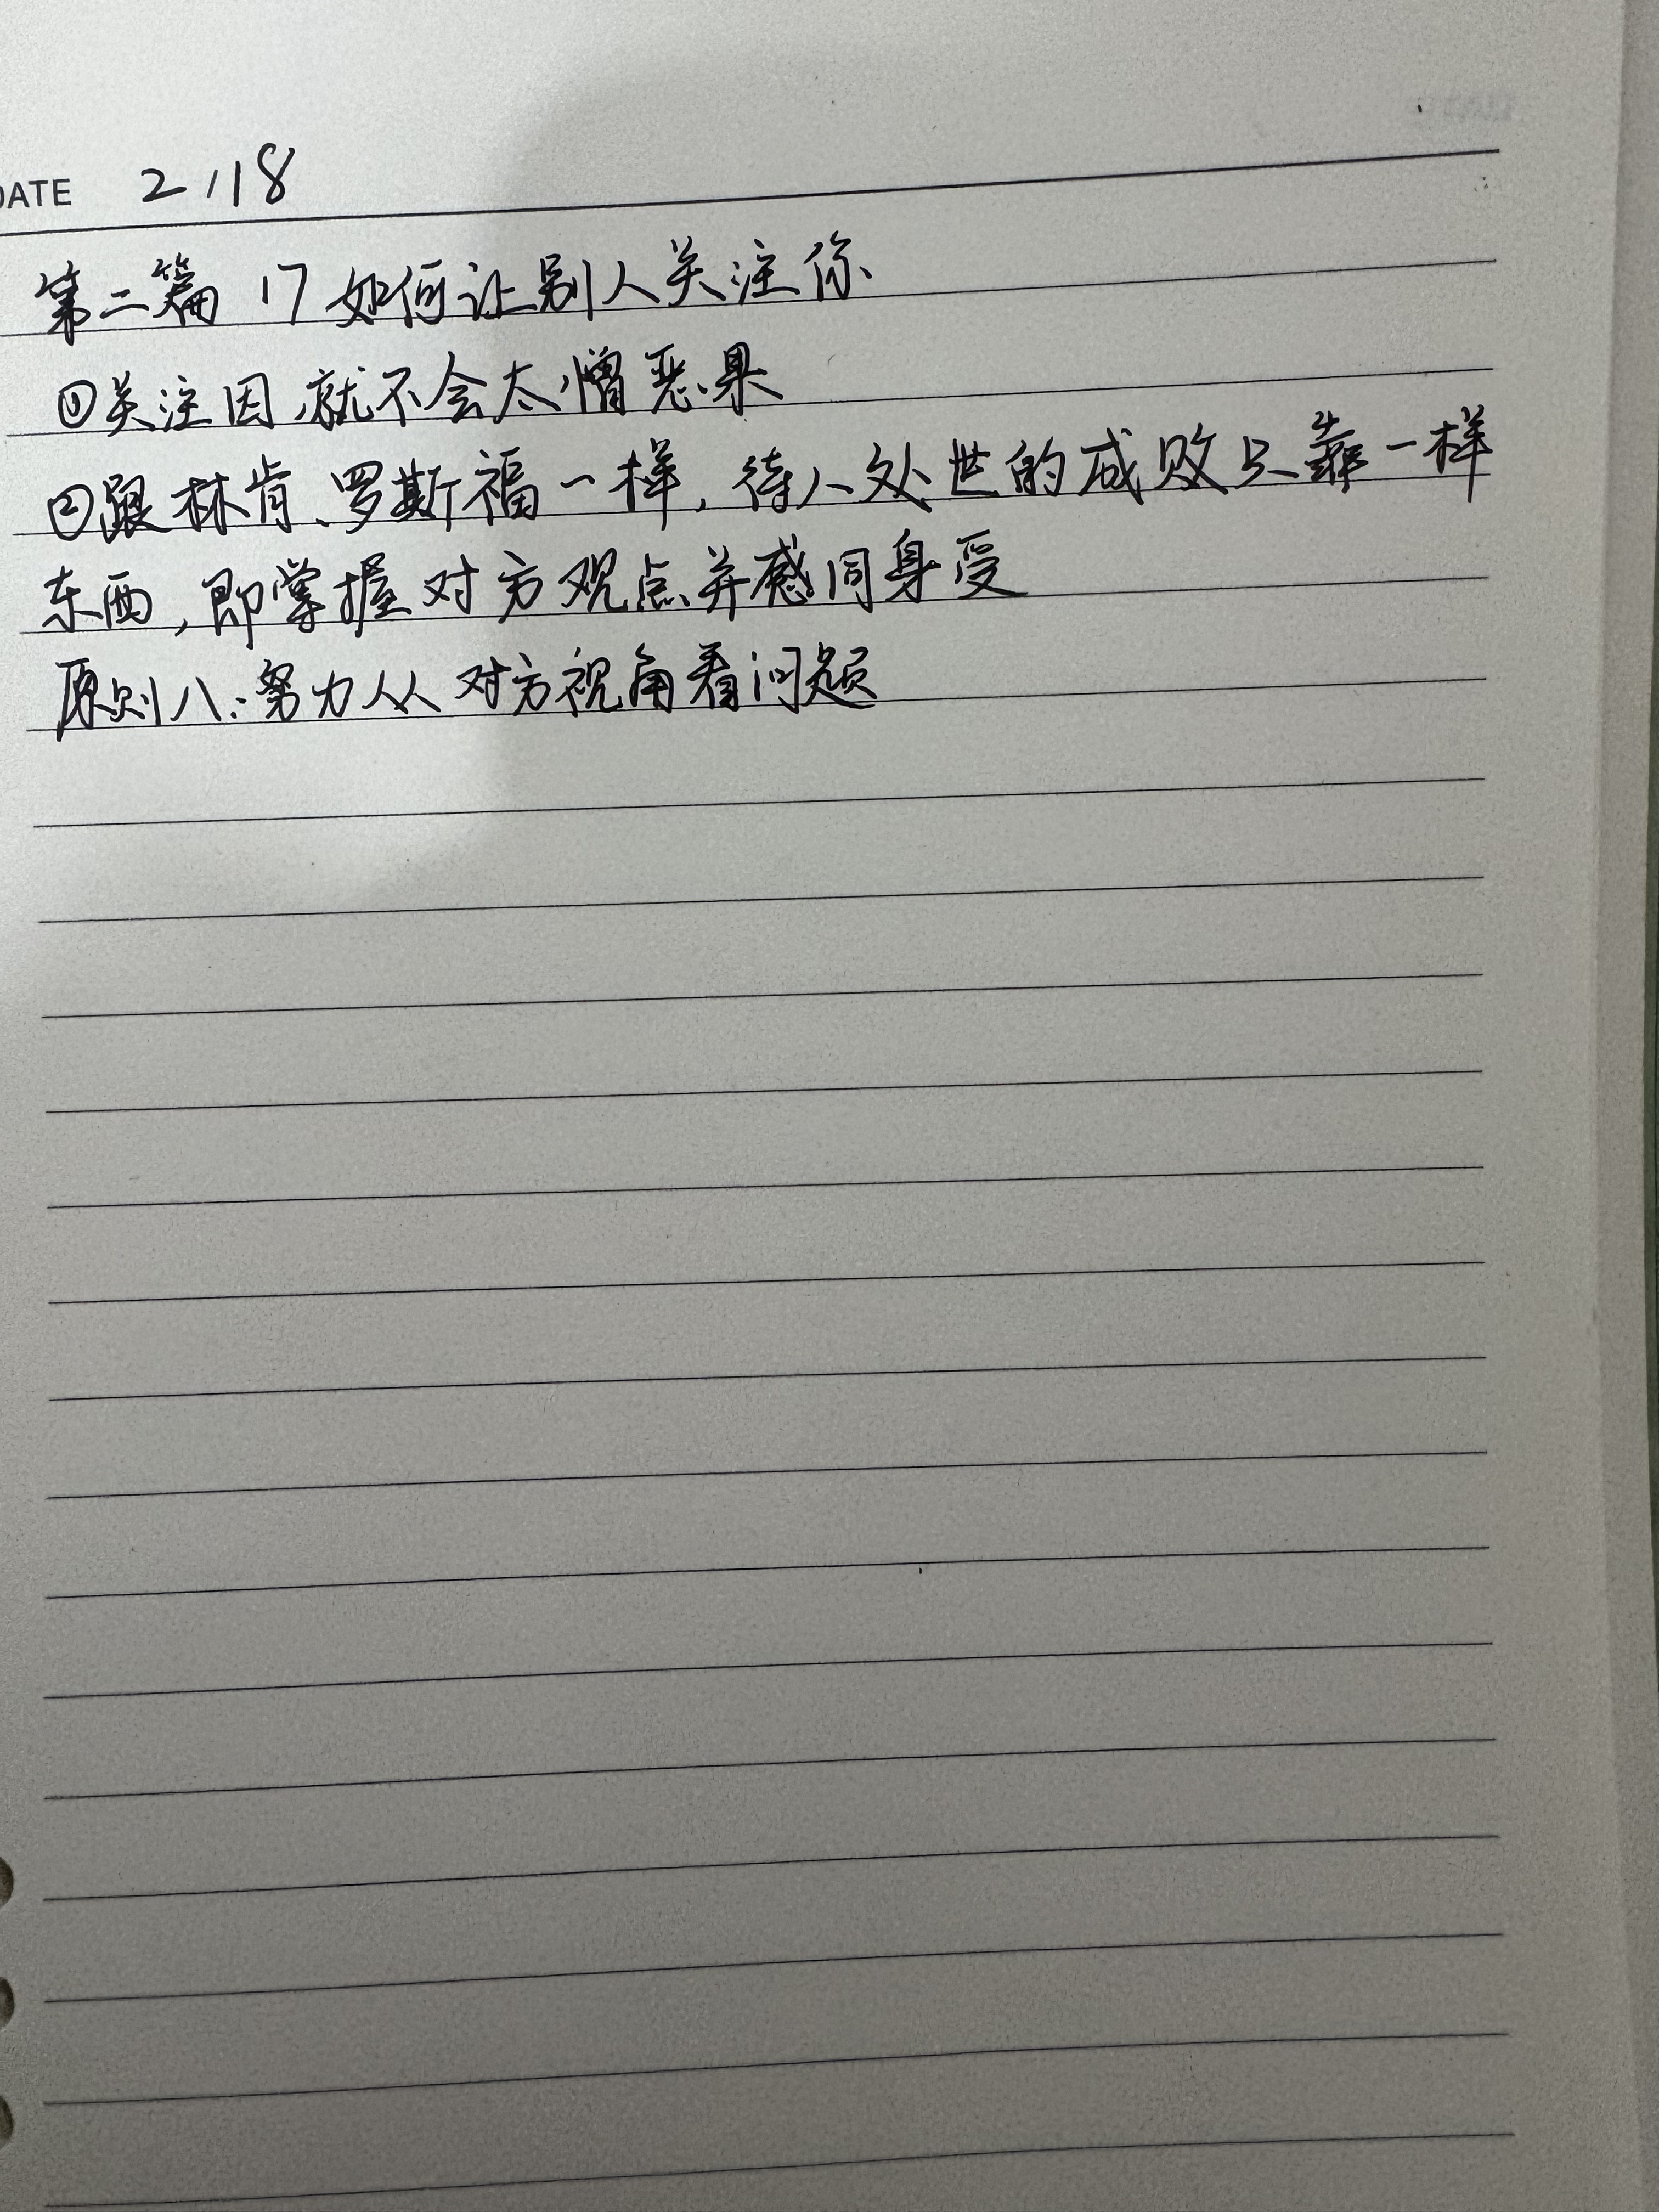 DATE 2/18
第二篇 17 如何让别人关注你
①关注因,就不会太憎恶果
②跟林肯、罗斯福一样,待人处世的成败只靠一样
东西,即掌握对方观点并感同身受
原则八:努力从对方视角看问题